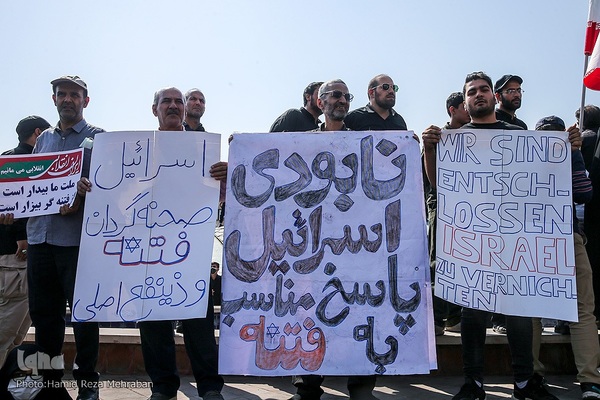 انقلابی می مانیم
ملت ما بیدار است
فتنه گر بیزار است
اسرائیل
صحنه گردان
فتنه
و ذینفع اصلی
نابودی
اسرائیل
پاسخ مناسب
به فتنه
WIR SIND
ENTSCH-
LOSSEN
ISRAEL
ZU VERNICH-
TEN
iqna
Photo:Hamid Reza Mehraban